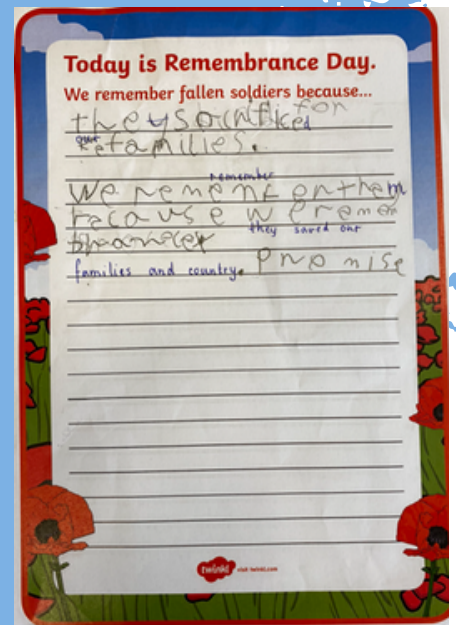 Today is Remembrance Day.
We remember fallen soldiers because...
they sacrificed for
our families.
remember
We rememf er them
recause we remem
they saved our
families and country. promise
twinkl visit twinkl.com